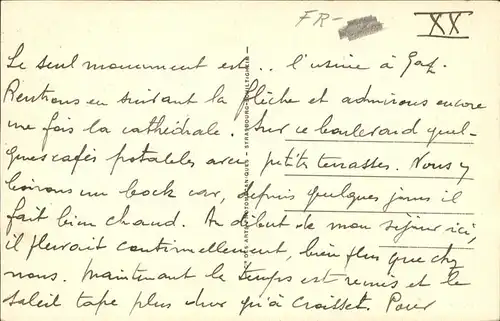 FR-
XX
Le seul monument est... l'usine à Gaz.
Rentrons en suivant la flèche et admirons encore
une fois la cathédrale. Sur ce boulevard quel-
ques cafés potables avec petits terrasses. Nous y
boirons un bock car, depuis quelques jours il
fait bien chaud. Au début de mon séjour ici,
il pleuvait continuellement, bien plus que chez
nous. Maintenant le temps est remis et le
soleil tape plus dur qu'à Croisset. Pour
DES ARTS PHOTOMÉCANIQUES - STRASBOURG-SCHILTIGHEIM